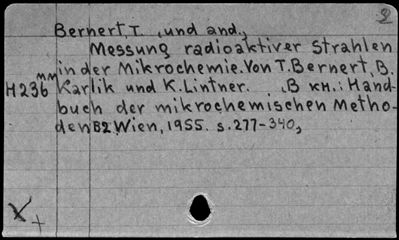 2
Bernert T. , und and.,
Messung radioaktiver Strahlen
in der Mikrochemie. Von T. Bernert, B.
H236 мм Karlik und K. Lintner. , В кн.: Hand-
buch der mikrochemischen Metho-
den B2 Wien, 1955. s. 277-340,
X +